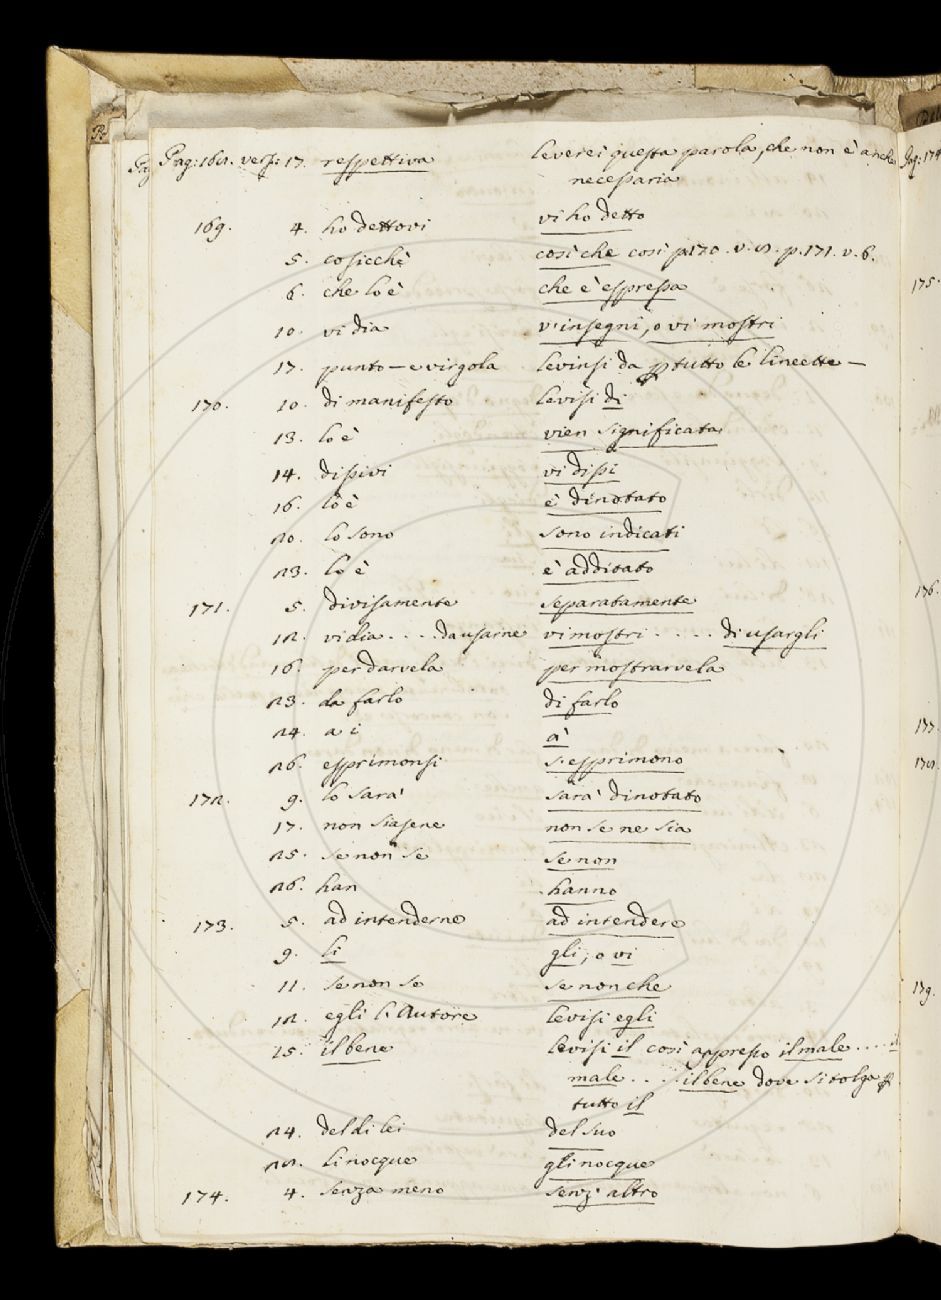 Pag: 168. vers: 17. respettiva leverei questa parola, che non è anche
necessaria
169. 4. ho dettovi vi ho detto
5. cosicchè così che così p170. v. 8. p. 171. v. 6.
6. che lo è che è espressa
10. vi dia v'insegni, o vi mostri
17. punto — e virgola levinsi da p tutto le lineette —
170. 10. di manifesto levisi di
13. lo è vien significata
14. dissivi vi dissi
16. lo è è dinotato
20. lo sono sono indicati
23. lo è è additato
171. 5. divisamente separatamente
12. vi dia . . . . da usarne vi mostri . . . . . di usargli
16. per darvela per mostrarvela
23. da farlo di farlo
24. a i a'
26. esprimonsi s'esprimono
172. 9. lo sarà sarà dinotato
17. non siasene non se ne sia
25. se non se se non
26. han hanno
173. 5. ad intenderne ad intendere
9. li gli, o vi
11. se non se se non che
12. egli l'Autore levisi egli
15. il bene levisi il così appresso il male . . . . il
male . . . il bene dove si tolga p
tutto il
24. del di lei del suo
28. li nocque gli nocque
174. 4. senza meno senz'altro
Pag: 174
175.
176.
177.
178.
179.